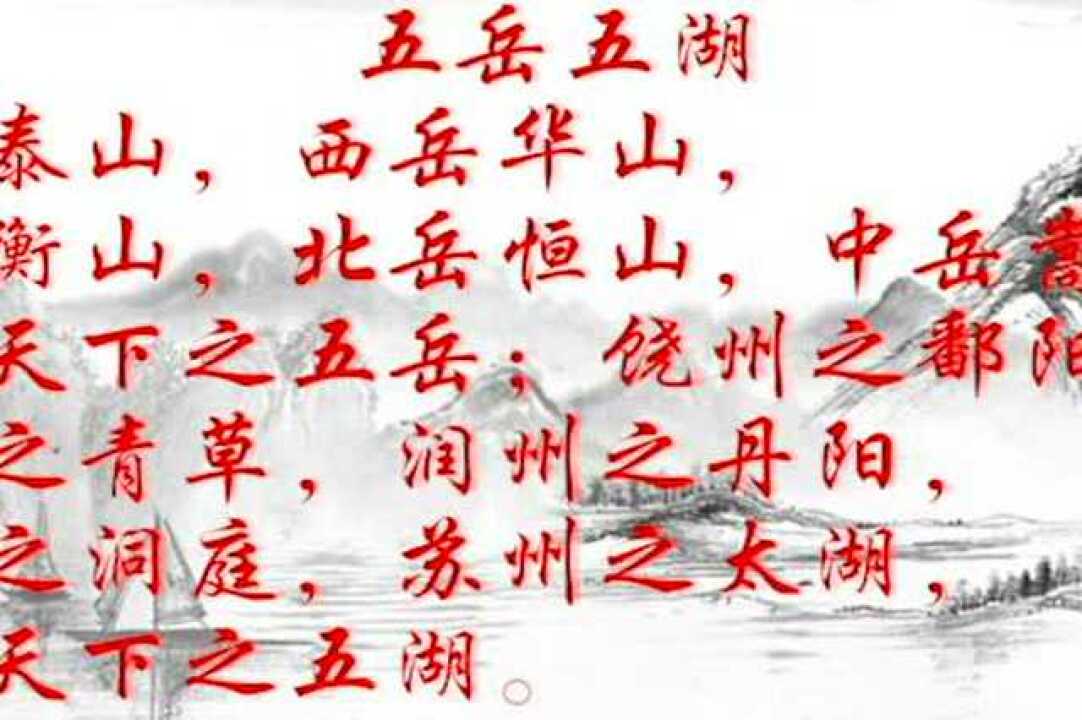 五岳五湖
泰山，西岳华山，
衡山，北岳恒山，中岳嵩
天下之五岳；饶州之鄱阳
之青草，润州之丹阳，
之洞庭，苏州之太湖，
天下之五湖。